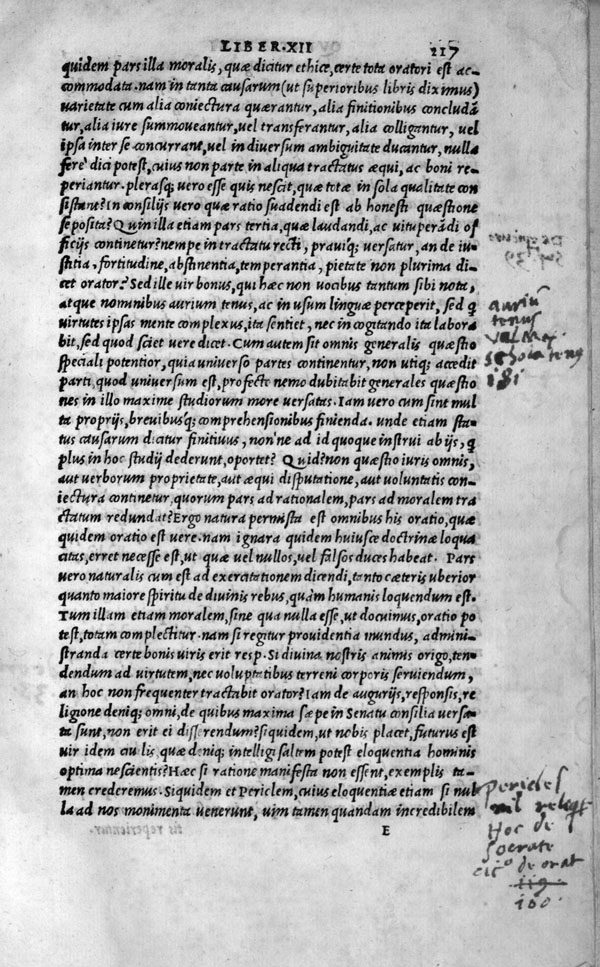 LIBER·XII 217
quidem pars illa moralis, quæ dicitur ethice, certe tota oratori est ac-
commodata. nam in tanta causarum (ut superioribus libris diximus)
varietate cum alia coniectura quærantur, alia finitionibus concludā
tur, alia iure summoveantur, vel transferantur, alia colligantur, vel
ipsa inter se concurrant, vel in diversum ambiguitate ducantur, nulla
fere' dici potest, cuius non parte in aliqua tractatus æqui, ac boni re-
periantur. plerasq; vero esse quis nescit, quæ totæ in sola qualitate con
sistant? In consilijs vero quæ ratio suadendi est ab honesti quæstione
seposita? Quin illa etiam pars tertia, quæ laudandi, ac vituperādi of
ficijs continetur? nempe in tractatu recti, praviq; versatur, an de iu-
stitia, fortitudine, abstinentia, temperantia, pietate non plurima di-
cet orator? Sed ille vir bonus, qui hæc non vocibus tantum sibi nota,
atque nominibus aurium tenus, ac in usum linguæ perceperit, sed q
virtutes ipsas mente complexus, ita sentiet, nec in cogitando ita labora
bit, sed quod sciet vere dicet. Cum autem sit omnis generalis quæstio
speciali potentior, quia universo partes continentur, non utiq; accedit
parti, quod universum est, profecto nemo dubitabit generales quæstio
nes in illo maxime studiorum more versatas. Iam vero cum sint mul
ta proprijs, brevibusq; comprehensionibus finienda. unde etiam sta-
tus causarum dicitur finitivus, non'ne ad id quoque instrui ab ijs, q
plus in hoc studij dederunt, oportet? Quid? non quæstio iuris omnis,
aut verborum proprietate, aut æqui disputatione, aut voluntatis con-
iectura continetur, quorum pars ad rationalem, pars ad moralem tra
ctatum redundat? Ergo natura permista est omnibus his oratio, quæ
quidem oratio est vere. nam ignara quidem huiusce doctrinæ loqua
citas, erret necesse est, ut quæ vel nullos, vel falsos duces habeat. Pars
vero naturalis cum est ad exercitationem dicendi, tanto cæteris uberior
quanto maiore spiritu de divinis rebus, quàm humanis loquendum est.
Tum illam etiam moralem, sine qua nulla esse, ut docuimus, oratio po
test, totam complectitur. nam si regitur providentia mundus, admini-
stranda certe bonis viris erit resp. Si divina nostris animis origo, ten-
dendum ad virtutem, nec voluptatibus terreni corporis serviendum,
an hoc non frequenter tractabit orator? Iam de augurijs, responsis, re
ligione deniq; omni, de quibus maxima sæpe in Senatu consilia versa
ta sunt, non erit ei disserendum? siquidem, ut nobis placet, futurus est
vir idem civilis, quæ deniq; intelligi saltem potest eloquentia hominis
optima nescientis? Hæc si ratione manifesta non essent, exemplis ta-
men crederemus. Siquidem et Periclem, cuius eloquentiæ etiam si nul
la ad nos monimenta venerunt, vim tamen quandam incredibilem
E
auriū
tenus
Val Max
schola tenꝰ
181
Pericles
nil
Hoc de
Socrate
cicº de orat
119
100